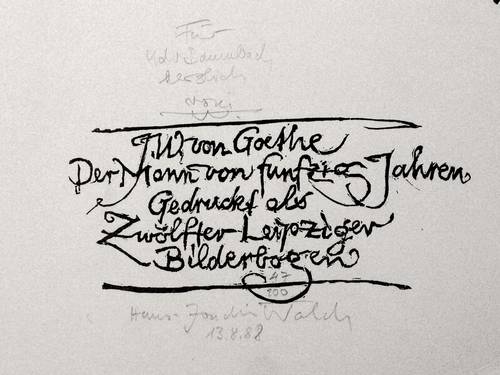 Für
herzlich
J.W. von Goethe
Der Mann von fünfzig Jahren
Gedruckt als
Zwölfter Leipziger
Bilderbogen
47
100
Hans-Joachim Walch
13.8.88